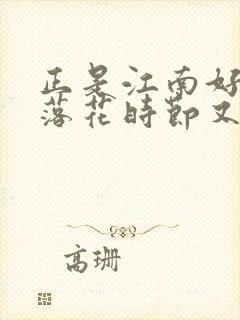 正是江南好
落花時節又
高珊